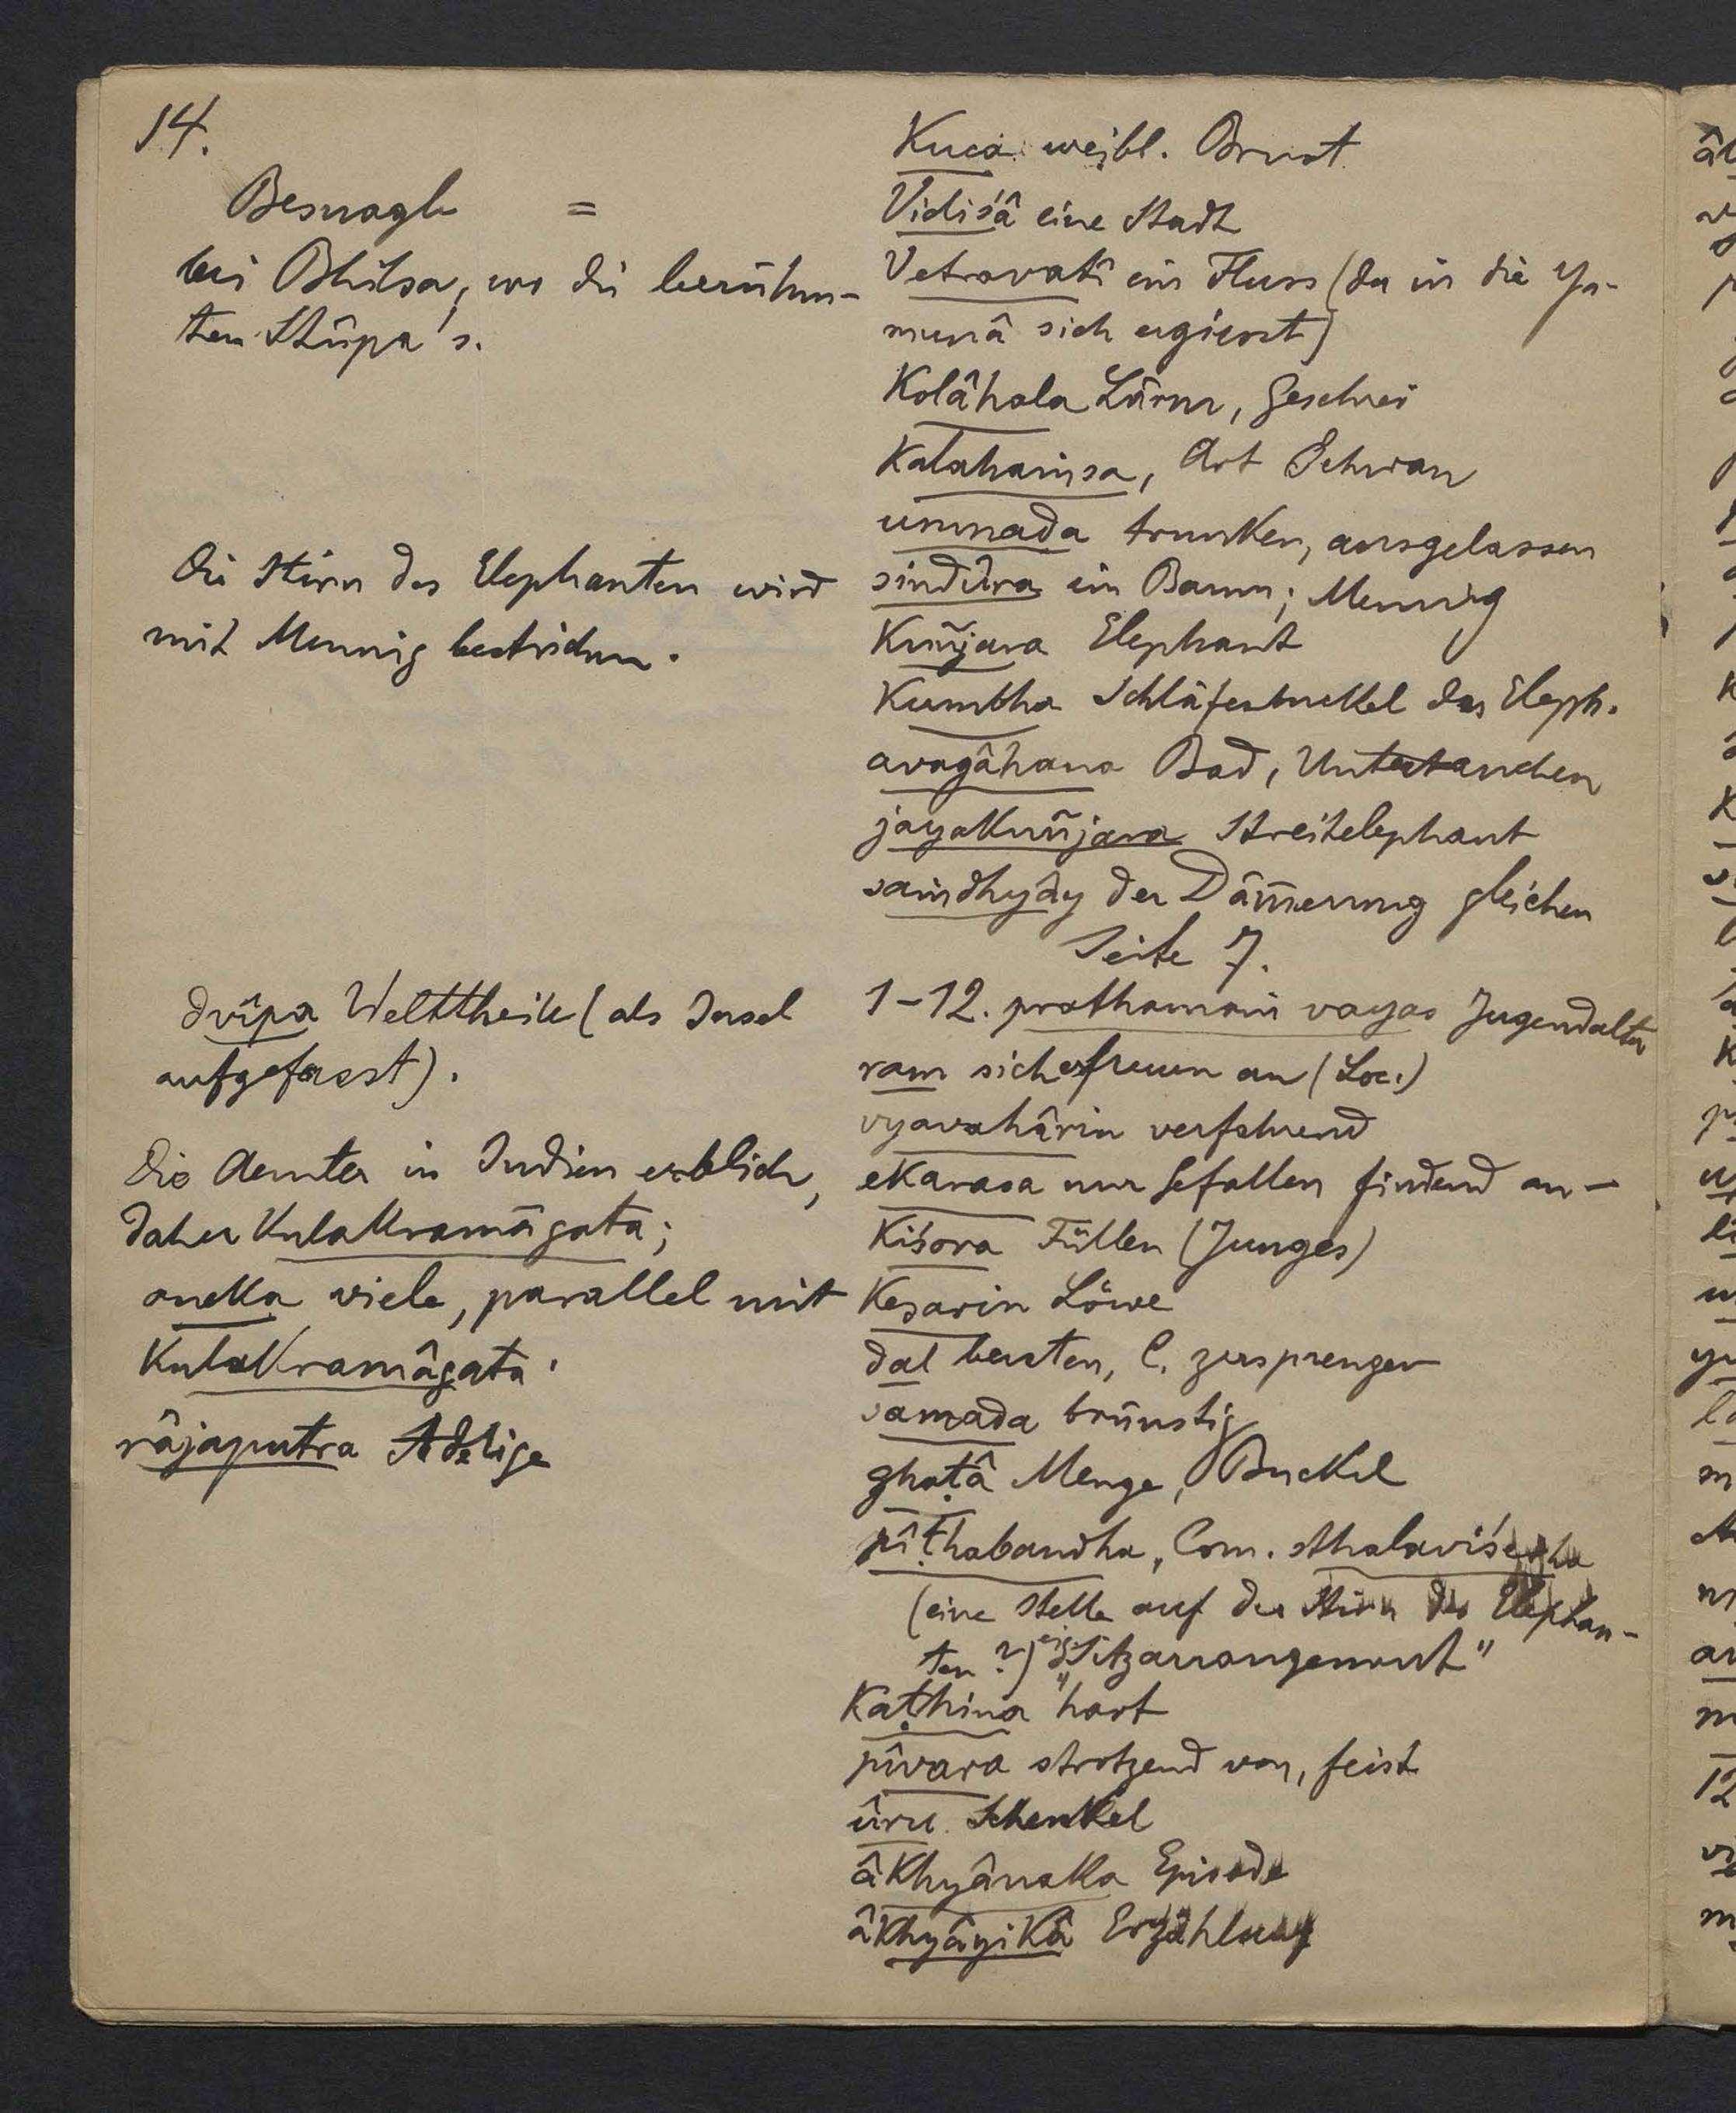 14.
Besnagh =
bei Bhilsa, wo die berühm-
ten Stûpa's.
Die Stirn des Elephanten wird
mit Mennig bestrichen.
dvîpa Welttheile (als Insel
aufgefasst).
Die Aemter in Indien erblich,
daher kulakramâgata;
aneka viele, parallel mit
kulakramâgata.
râjaputra Adelige
kuca weibl. Brust
Vidiśâ eine Stadt
Vetravatî ein Fluss (der in die Ya-
munâ sich ergiesst)
kolâhala Lärm, Geschrei
kalahaṁsa, Art Schwan
unmada trunken, ausgelassen
sindûra ein Baum; Mennig
kuñjara Elephant
kumbha Schläfenbuckel des Eleph.
avagâhana Bad, Untertauchen
jayakuñjara Streitelephant
saṁdhyây der Däm̄erung gleichen
Seite 7.
1-12. prathamaṁ vayas Jugendalter
ram sich erfreuen an (Loc.)
vyavahârin verfahrend
ekarasa nur Gefallen findend an-
kiśora Füllen (Junges)
kesarin Löwe
dal bersten, C. zersprengen
samada brünstig
ghaṭâ Menge, Buckel
pîṭhabandha, Com. sthalaviśesha
(eine Stelle auf der Stirn des Elephan-
ten?) eig. "Sitzarrangement"
kaṭhina hart
pîvara strotzend von, feist
ûru Schenkel
âkhyânaka Episode
âkhyâyikâ Erzählung